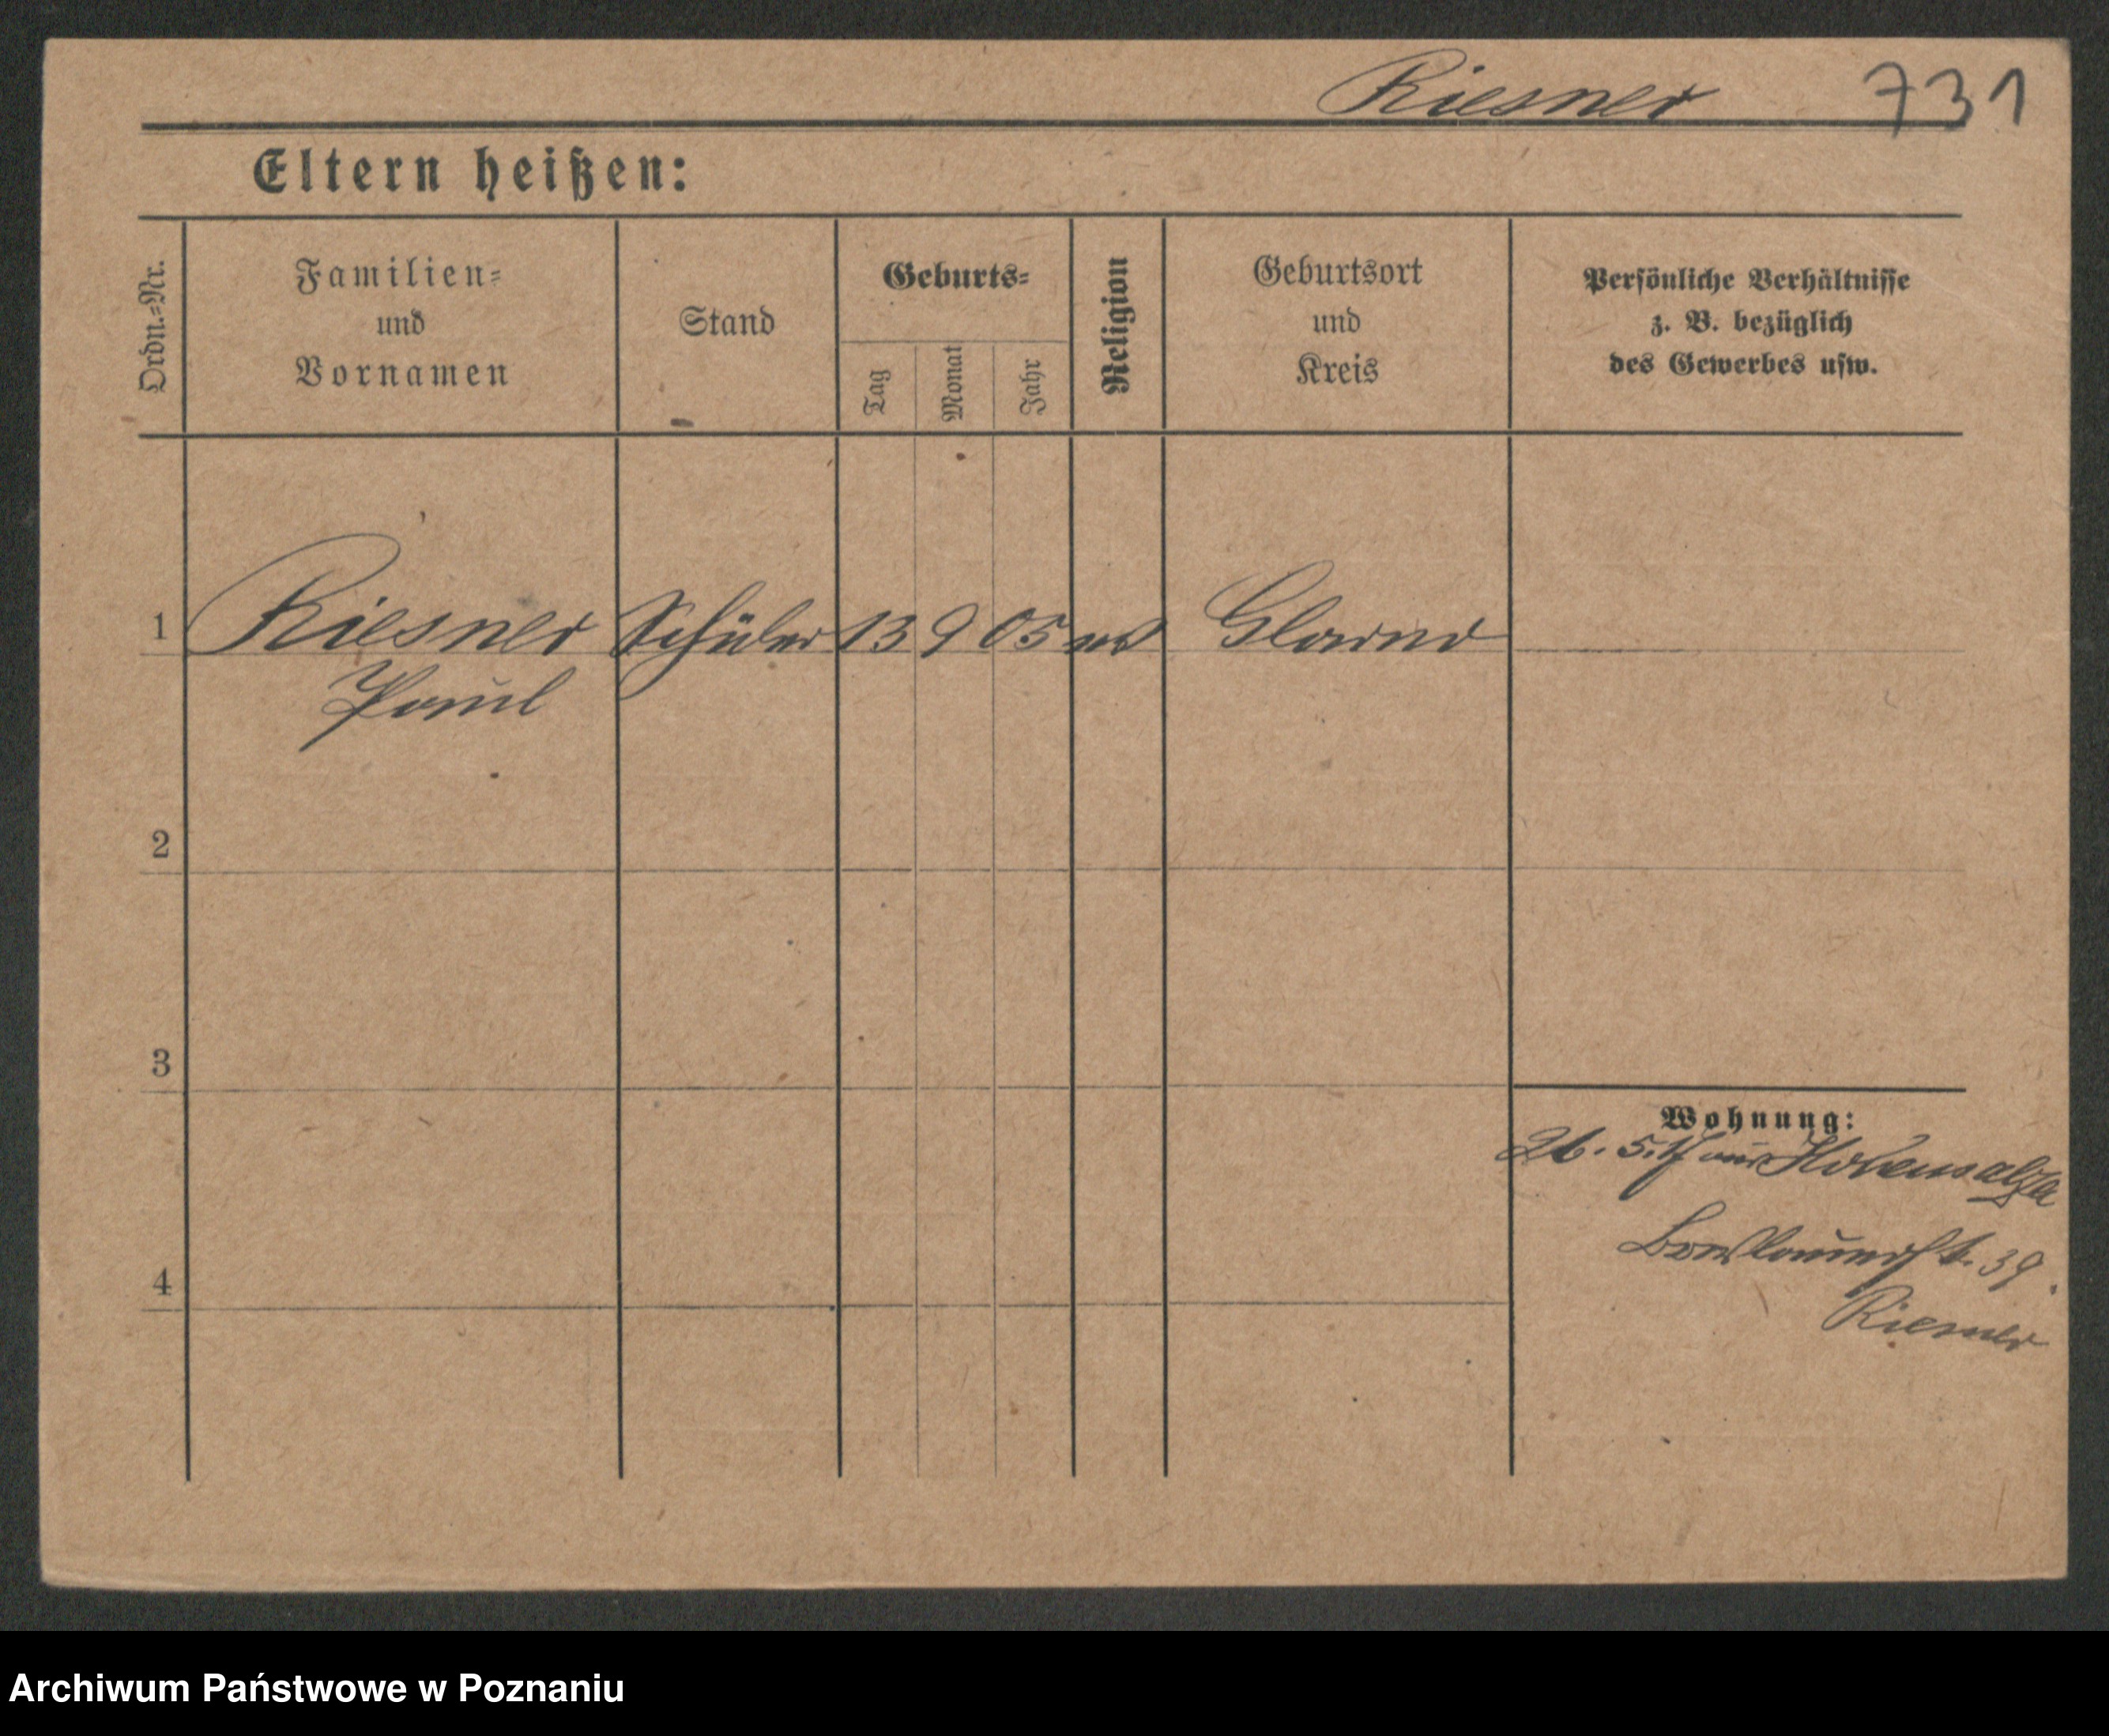 Riesner 731
Eltern heißen:
Ordn.-Nr.
Familien-
und
Vornamen
Stand
Geburts-
Tag
Monat
Jahr
Religion
Geburtsort
und
Kreis
Persönliche Verhältnisse
z. B. bezüglich
des Gewerbes usw.
1 Riesner Schüler 13 9 05 ev
Paul
2
3
4
Wohnung:
26. 5. 17 aus Hohensalza
Breslauerst. 39.
Riesner
Archiwum Państwowe w Poznaniu